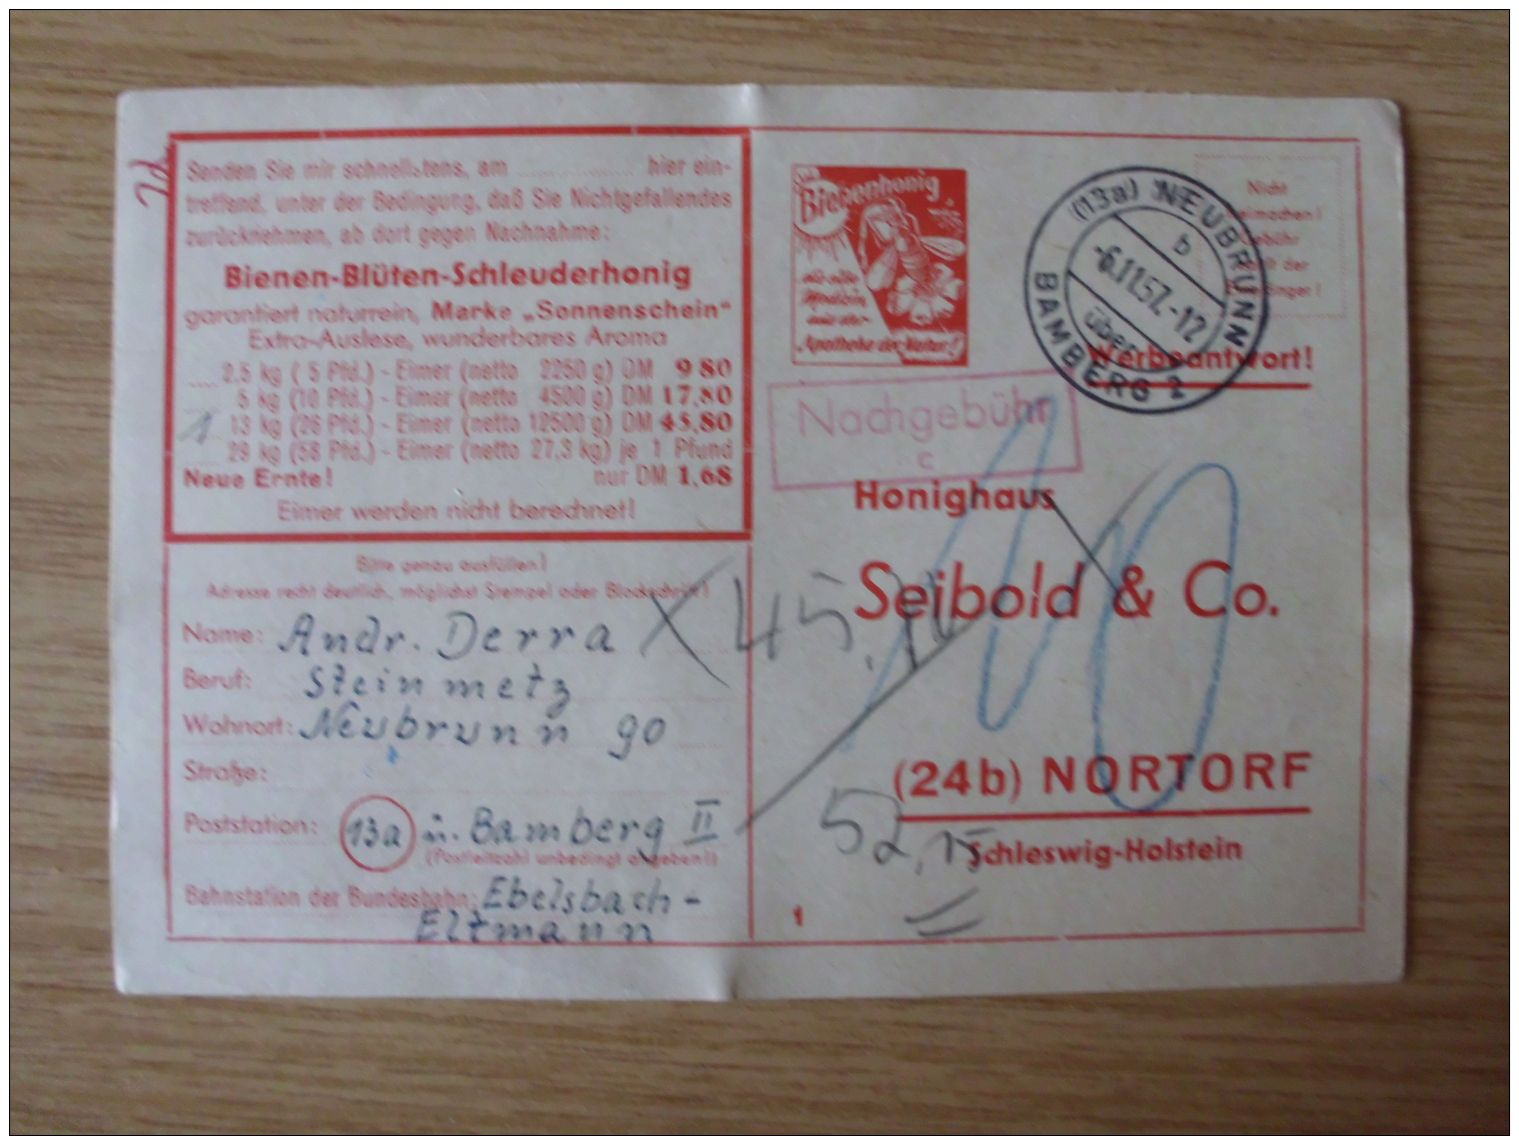 Senden Sie mir schnellstens, am .................. hier ein-
treffend, unter der Bedingung, daß Sie Nichtgefallendes
zurücknehmen, ab dort gegen Nachnahme:
Bienen-Blüten-Schleuderhonig
garantiert naturrein, Marke „Sonnenschein"
Extra-Auslese, wunderbares Aroma
.... 2,5 kg ( 5 Pfd.) - Eimer (netto 2250 g) DM 9 80
5 kg (10 Pfd.) - Eimer (netto 4500 g) DM 17.80
1 13 kg (26 Pfd.) - Eimer (netto 12500 g) DM 45.80
.... 28 kg (56 Pfd.) - Eimer (netto 27,3 kg) je 1 Pfund
Neue Ernte! nur DM 1,68
Eimer werden nicht berechnet!
Bitte genau ausfüllen!
Adresse recht deutlich, möglichst Stempel oder Blockschrift!
Name: Andr. Derra
Beruf: Steinmetz
Wohnort: Neubrunn 90
Straße:
Poststation: 13a ü. Bamberg II
(Postleitzahl unbedingt angeben!)
Bahnstation der Bundesbahn: Ebelsbach-
Eltmann
Bienenhonig
die alte
Medizin
aus der
Apotheke der Natur!
(13a) NEUBRUNN
b
-6.11.57.-12
über
BAMBERG 2
Nicht
Gebühr
der
Werbeantwort!
Nachgebühr
c
10
Honighaus
Seibold & Co.
45,
(24b) NORTORF
52,15
Schleswig-Holstein
1